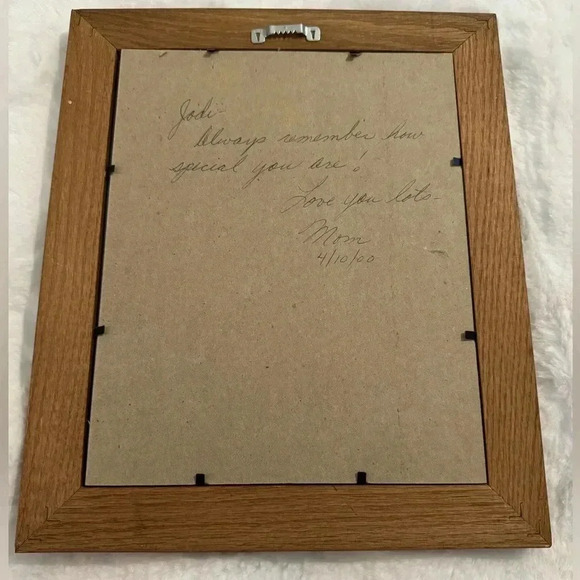 Jodi-
Always remember how
special you are!
Love you lots-
Mom
4/10/00